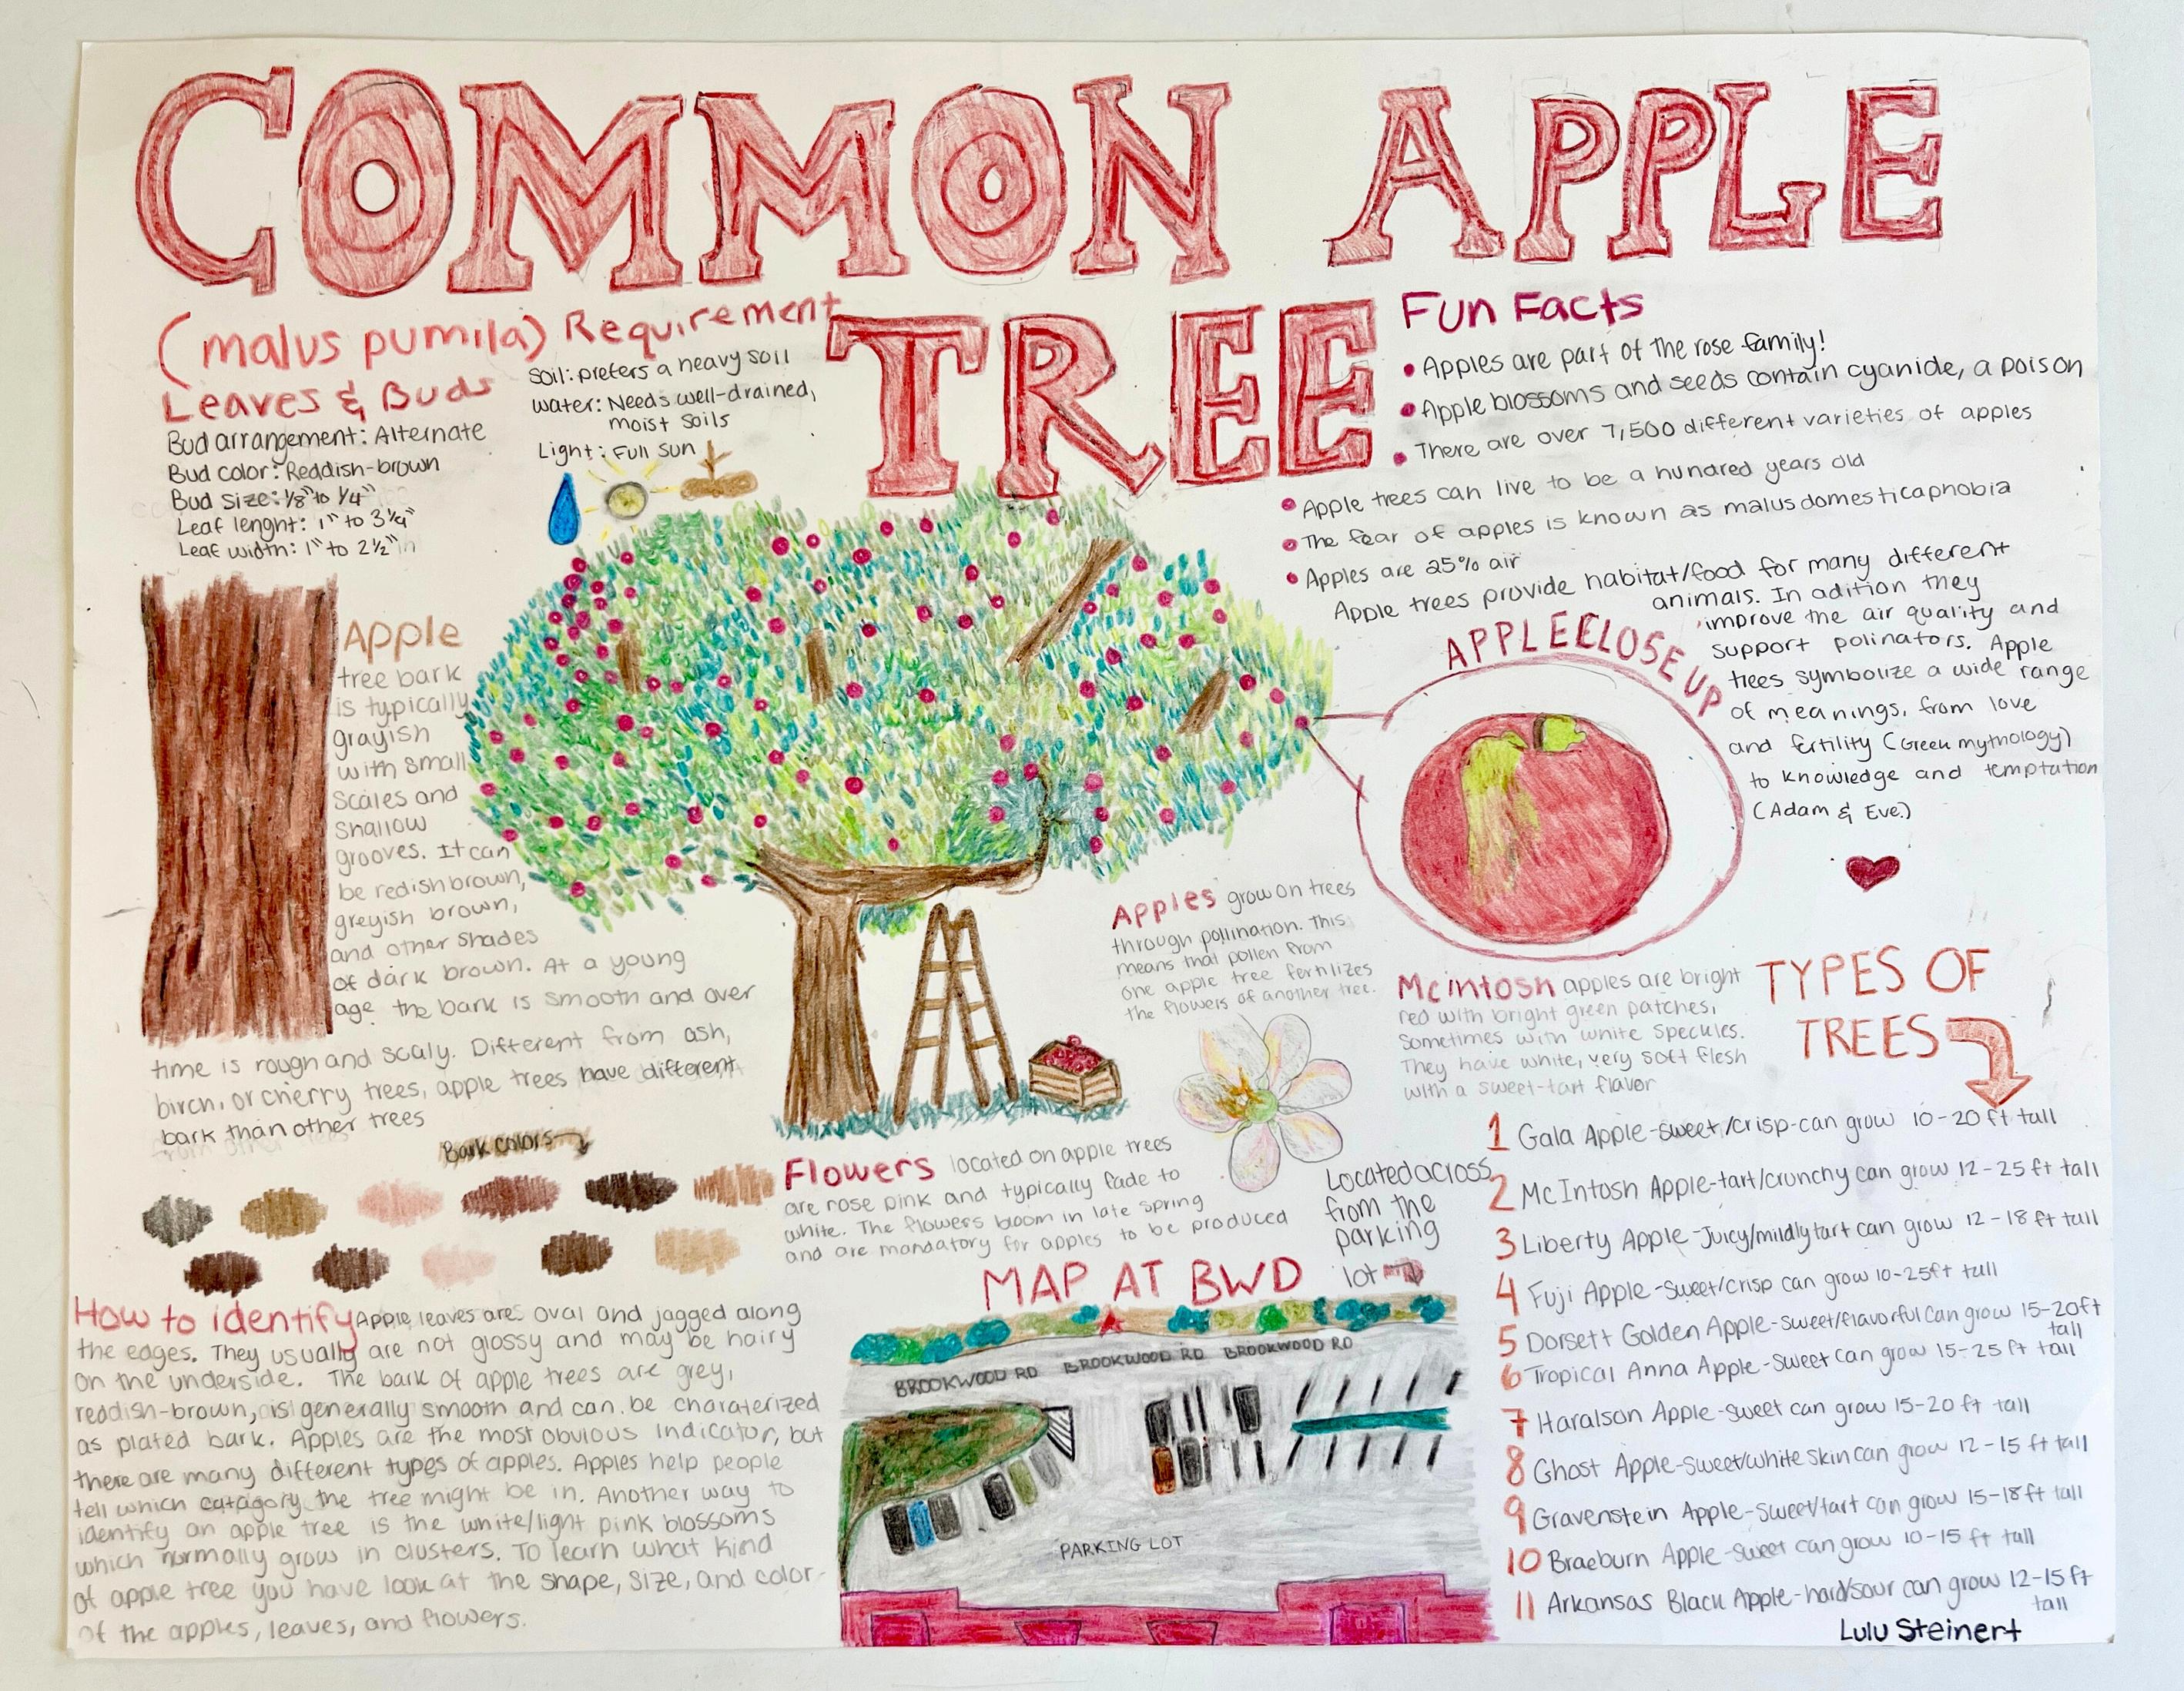 COMMON APPLE
TREE
(malus pumila)
Leaves & Buds
Bud arrangement: Alternate
Bud color: Reddish-brown
Bud size: 1/8" to 1/4"
Leaf lenght: 1" to 3 1/4"
Leaf width: 1" to 2 1/2"
Requirement
Soil: prefers a heavy soil
Water: Needs well-drained,
moist soils
Light: Full sun
Fun Facts
• Apples are part of the rose family!
• Apple blossoms and seeds contain cyanide, a poison
• There are over 7,500 different varieties of apples
• Apple trees can live to be a hundred years old
• The fear of apples is known as malusdomesticaphobia
• Apples are 25% air
Apple trees provide habitat/food for many different
animals. In adition they
improve the air quality and
support polinators. Apple
trees symbolize a wide range
of meanings, from love
and fertility (Greek mythology)
to knowledge and temptation
(Adam & Eve.)
Apple
tree bark
is typically
grayish
with small
scales and
shallow
grooves. It can
be redish brown,
greyish brown,
and other shades
of dark brown. At a young
age the bark is smooth and over
time is rough and scaly. Different from ash,
birch, or cherry trees, apple trees have different
bark than other trees
Bark colors
APPLE CLOSE UP
Apples grow on trees
through pollination. This
means that pollen from
one apple tree fertilizes
the flowers of another tree.
McIntosh apples are bright
red with bright green patches,
sometimes with white speckles.
They have white, very soft flesh
with a sweet-tart flavor
Flowers located on apple trees
are rose pink and typically fade to
white. The flowers bloom in late spring
and are mandatory for apples to be produced
How to identify Apple leaves are oval and jagged along
the edges. They usually are not glossy and may be hairy
on the underside. The bark of apple trees are grey,
reddish-brown, is generally smooth and can be charaterized
as plated bark. Apples are the most obvious indicator, but
there are many different types of apples. Apples help people
tell which catagory the tree might be in. Another way to
identify an apple tree is the white/light pink blossoms
which normally grow in clusters. To learn what kind
of apple tree you have look at the shape, size, and color
of the apples, leaves, and flowers.
MAP AT BWD
Located across
from the
parking
lot
BROOKWOOD RD BROOKWOOD RD BROOKWOOD RD
PARKING LOT
TYPES OF
TREES
1 Gala Apple-sweet/crisp-can grow 10-20 ft tall
2 McIntosh Apple-tart/crunchy can grow 12-25 ft tall
3 Liberty Apple-Juicy/mildly tart can grow 12-18 ft tall
4 Fuji Apple-sweet/crisp can grow 10-25ft tall
5 Dorsett Golden Apple-sweet/flavorful can grow 15-20ft
tall
6 Tropical Anna Apple-sweet can grow 15-25 ft tall
7 Haralson Apple-sweet can grow 15-20 ft tall
8 Ghost Apple-sweet/white skin can grow 12-15 ft tall
9 Gravenstein Apple-sweet/tart can grow 15-18ft tall
10 Braeburn Apple-sweet can grow 10-15 ft tall
11 Arkansas Black Apple-hard/sour can grow 12-15 ft
tall
Lulu Steinert